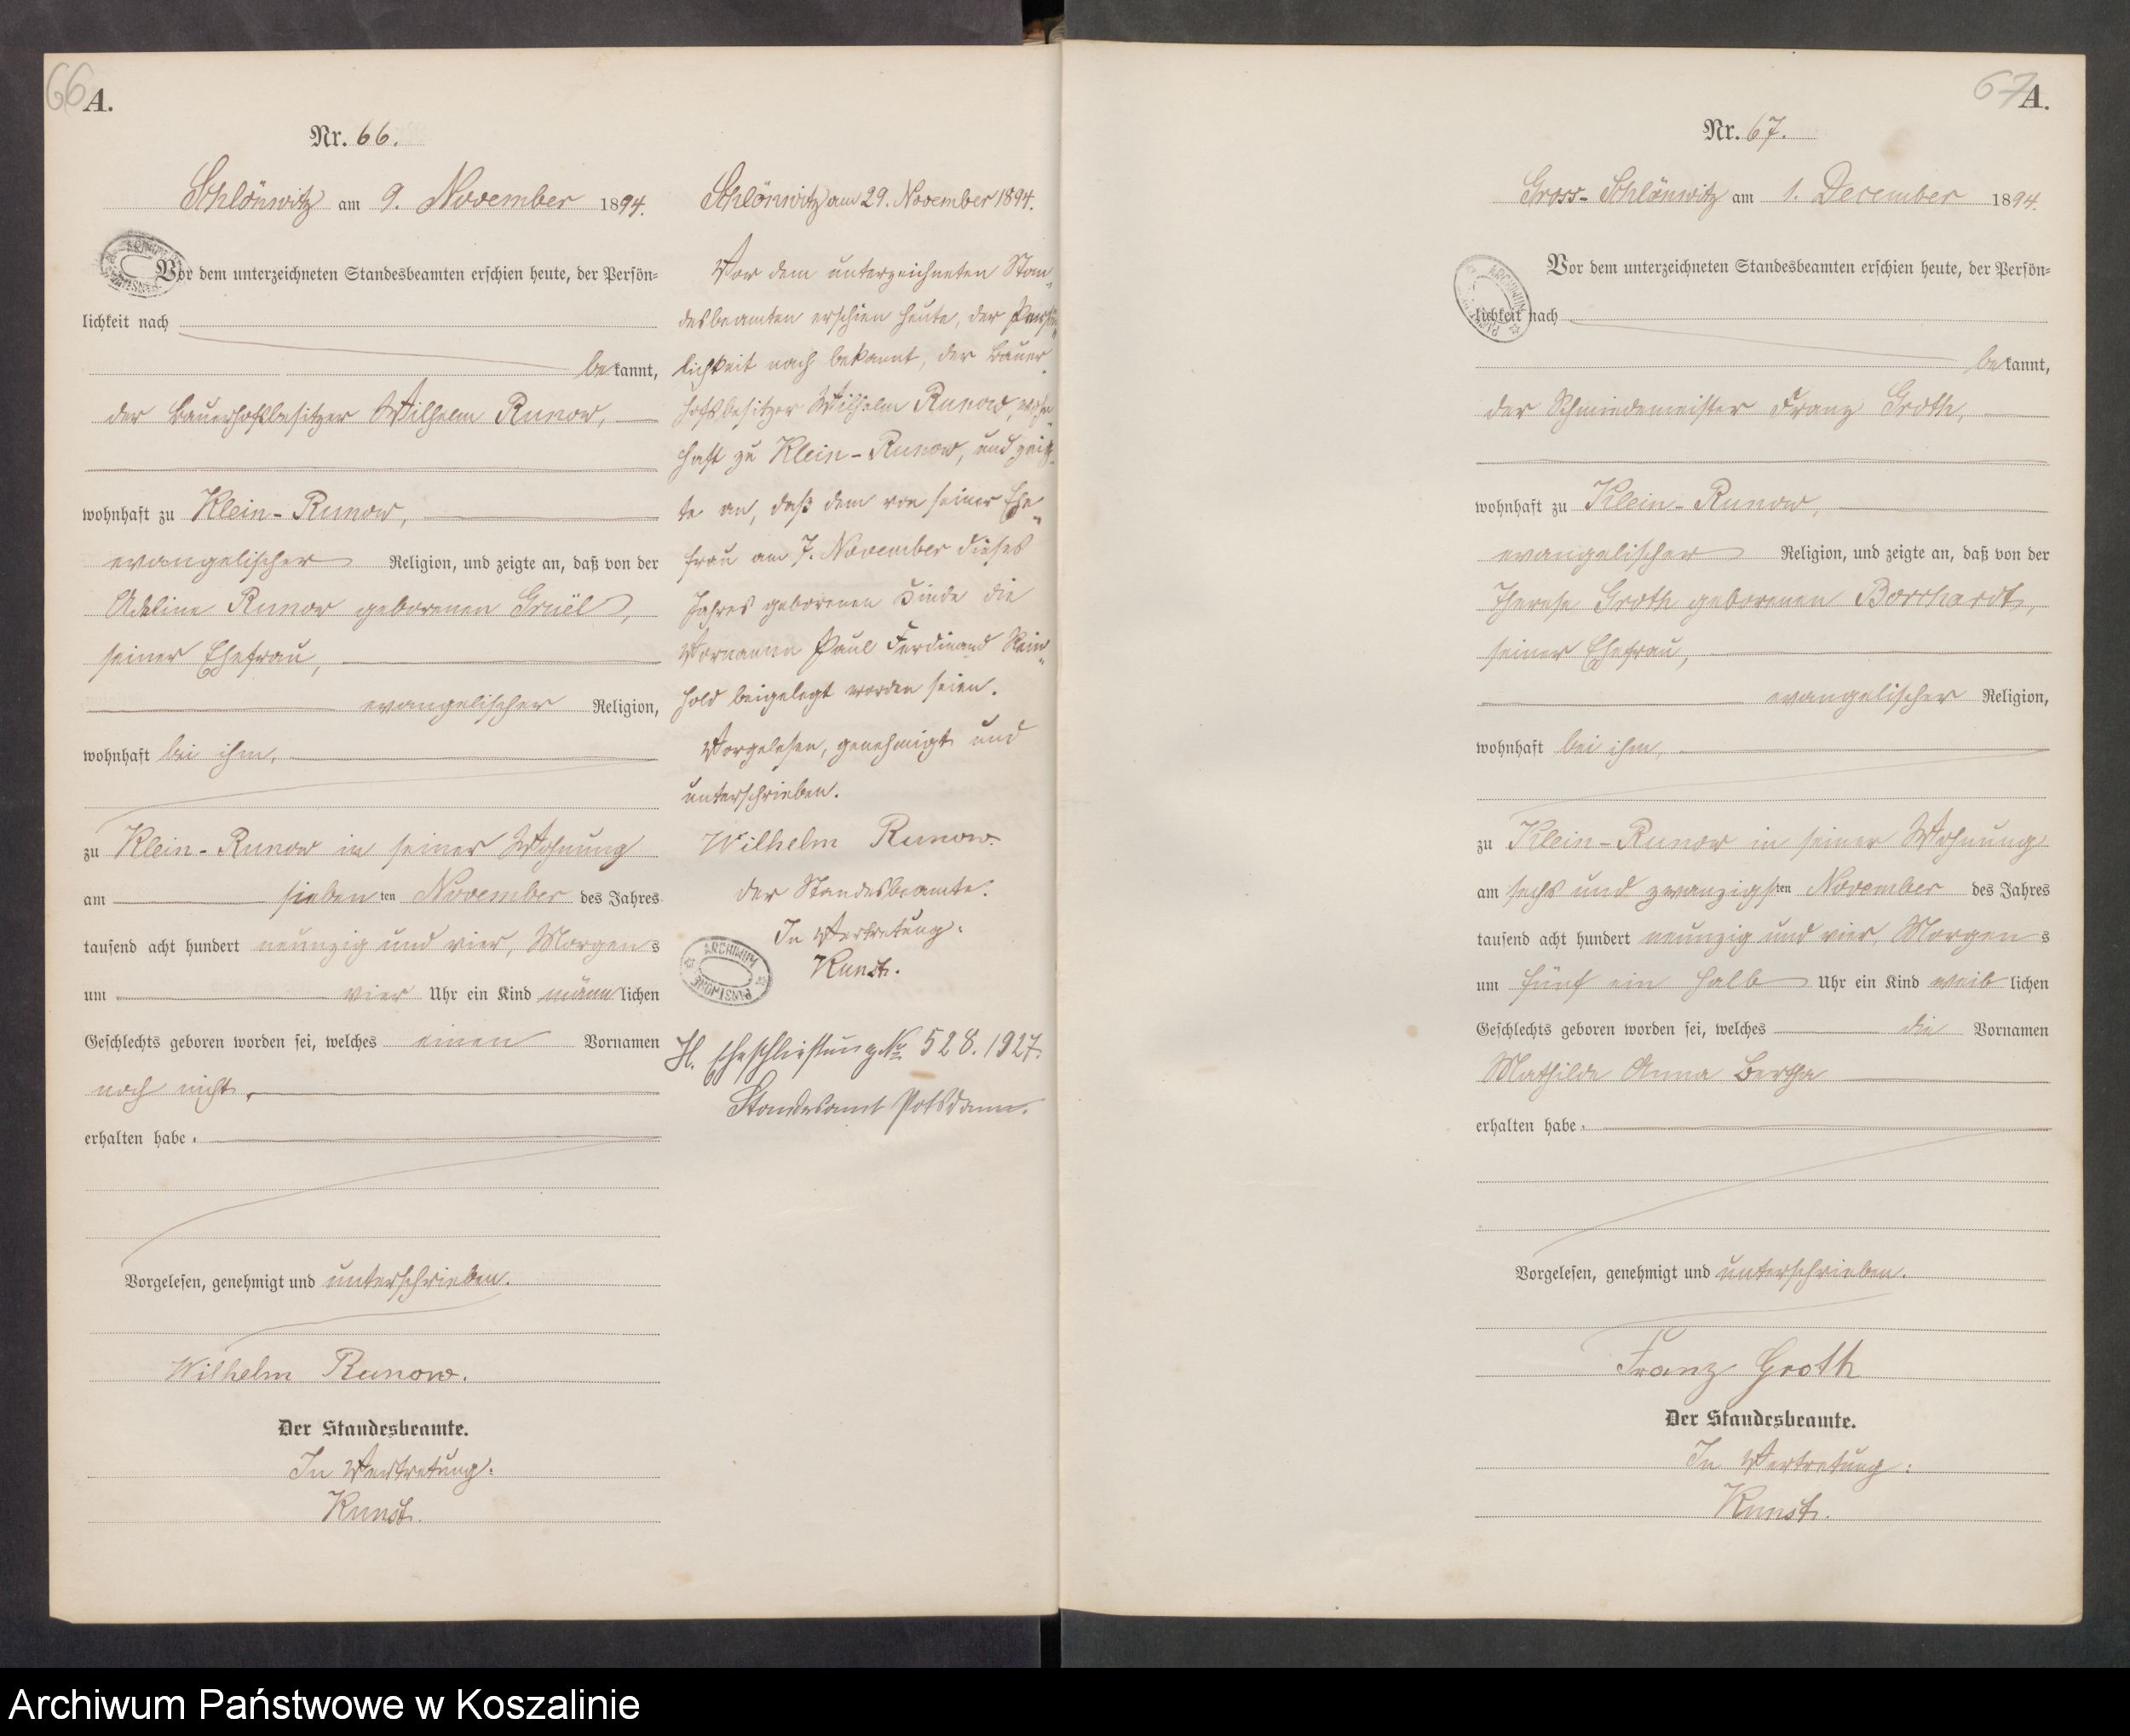 66
A.
Nr. 66.
Schlönwitz am 9. November 1894.
Vor dem unterzeichneten Standesbeamten erschien heute, der Persön-
lichkeit nach
bekannt,
der Bauerhofsbesitzer Wilhelm Runow,
wohnhaft zu Klein-Runow,
evangelischer Religion, und zeigte an, daß von der
Adeline Runow geborenen Grüel,
seiner Ehefrau,
evangelischer Religion,
wohnhaft bei ihm,
zu Klein-Runow in seiner Wohnung
am siebenten November des Jahres
tausend acht hundert neunzig und vier, Morgens
um vier Uhr ein Kind männlichen
Geschlechts geboren worden sei, welches einen Vornamen
noch nicht
erhalten habe.
Vorgelesen, genehmigt und unterschrieben.
Wilhelm Runow.
Der Standesbeamte.
In Vertretung:
Kunst.
Schlönwitz am 29. November 1894.
Vor dem unterzeichneten Stan-
desbeamten erschien heute, der Persön-
lichkeit nach bekannt, der Bauer-
hofsbesitzer Wilhelm Runow, wohn-
haft zu Klein-Runow, und zeig-
te an, daß dem von seiner Ehe-
frau am 7. November dieses
Jahres geborenen Kinde die
Vornamen Paul Ferdinand Rein-
hold beigelegt worden seien.
Vorgelesen, genehmigt und
unterschrieben.
Wilhelm Runow.
Der Standesbeamte.
In Vertretung:
Kunst.
ARCHIWUM PAŃSTWOWE
H. Eheschließung No 528. 1927.
Standesamt Potsdam.
67
A.
Nr. 67.
Gross-Schlönwitz am 1. December 1894.
Vor dem unterzeichneten Standesbeamten erschien heute, der Persön-
lichkeit nach
bekannt,
der Schmiedemeister Franz Groth,
wohnhaft zu Klein-Runow,
evangelischer Religion, und zeigte an, daß von der
Therese Groth geborenen Borchardt,
seiner Ehefrau,
evangelischer Religion,
wohnhaft bei ihm,
zu Klein-Runow in seiner Wohnung
am sechs und zwanzigsten November des Jahres
tausend acht hundert neunzig und vier, Morgens
um fünf ein halb Uhr ein Kind weiblichen
Geschlechts geboren worden sei, welches die Vornamen
Mathilde Anna Bertha
erhalten habe.
Vorgelesen, genehmigt und unterschrieben.
Franz Groth
Der Standesbeamte.
In Vertretung:
Kunst.
Archiwum Państwowe w Koszalinie